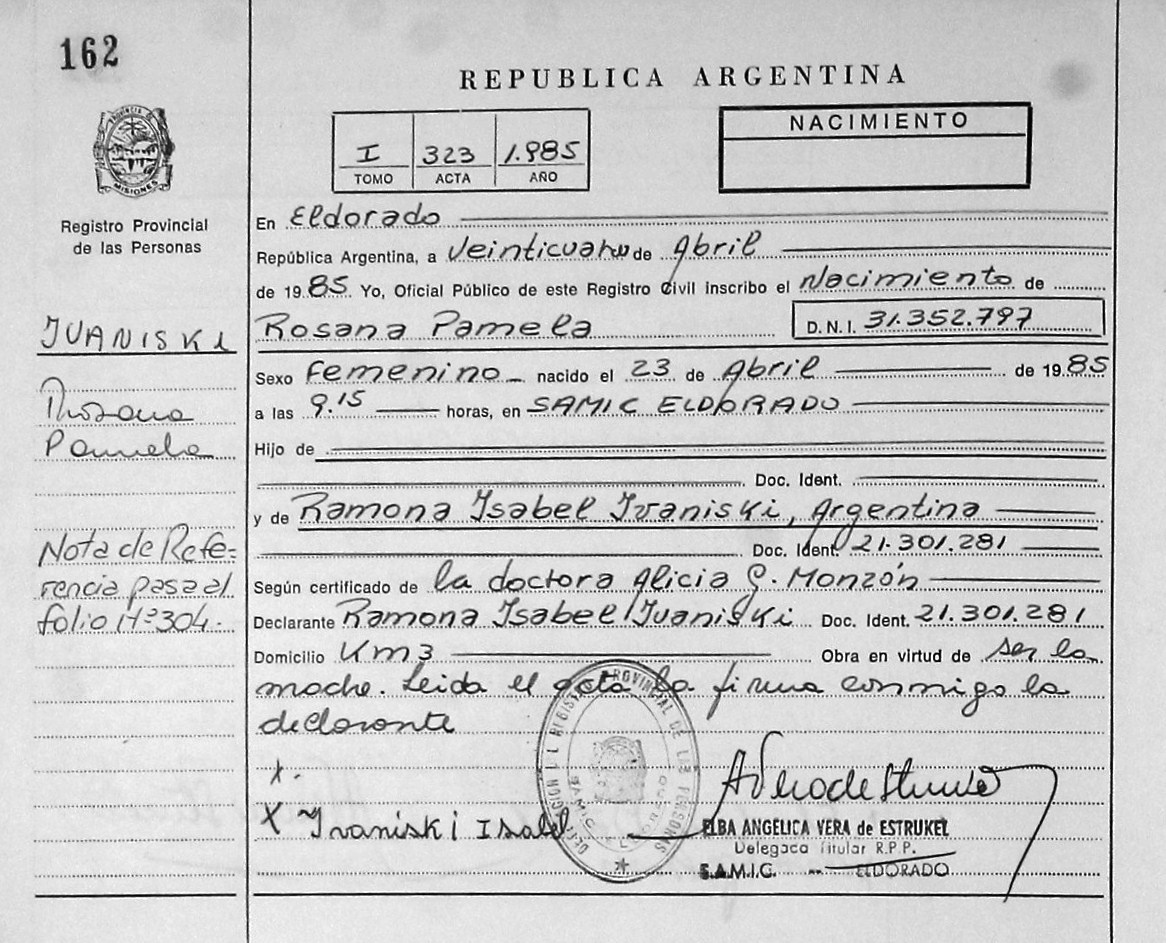 162
REPUBLICA ARGENTINA
PROVINCIA DE MISIONES
Registro Provincial
de las Personas
I 323 1.985
TOMO ACTA AÑO
NACIMIENTO
IVANISKI
Rosana
Pamela
Nota de Refe-
rencia pasa al
folio Nº 304.
En Eldorado
República Argentina, a Veinticuatro de Abril
de 1985 Yo, Oficial Público de este Registro Civil inscribo el Nacimiento de
Rosana Pamela D.N.I. 31.352.797
Sexo Femenino nacido el 23 de Abril de 1985
a las 9.15 horas, en SAMIC ELDORADO
Hijo de
Doc. Ident.
y de Ramona Isabel Ivaniski, Argentina
Doc. Ident. 21.301.281
Según certificado de la doctora Alicia G. Monzón
Declarante Ramona Isabel Ivaniski Doc. Ident. 21.301.281
Domicilio Km 3 Obra en virtud de ser la
madre. Leida el acta la firma conmigo la
declarante
X.
X Ivaniski Isabel
DELEGACION DEL REGISTRO PROVINCIAL DE LAS PERSONAS
SAMIC ELDORADO
ELBA ANGELICA VERA de ESTRUKEL
Delegada Titular R.P.P.
S.A.M.I.C. -- ELDORADO